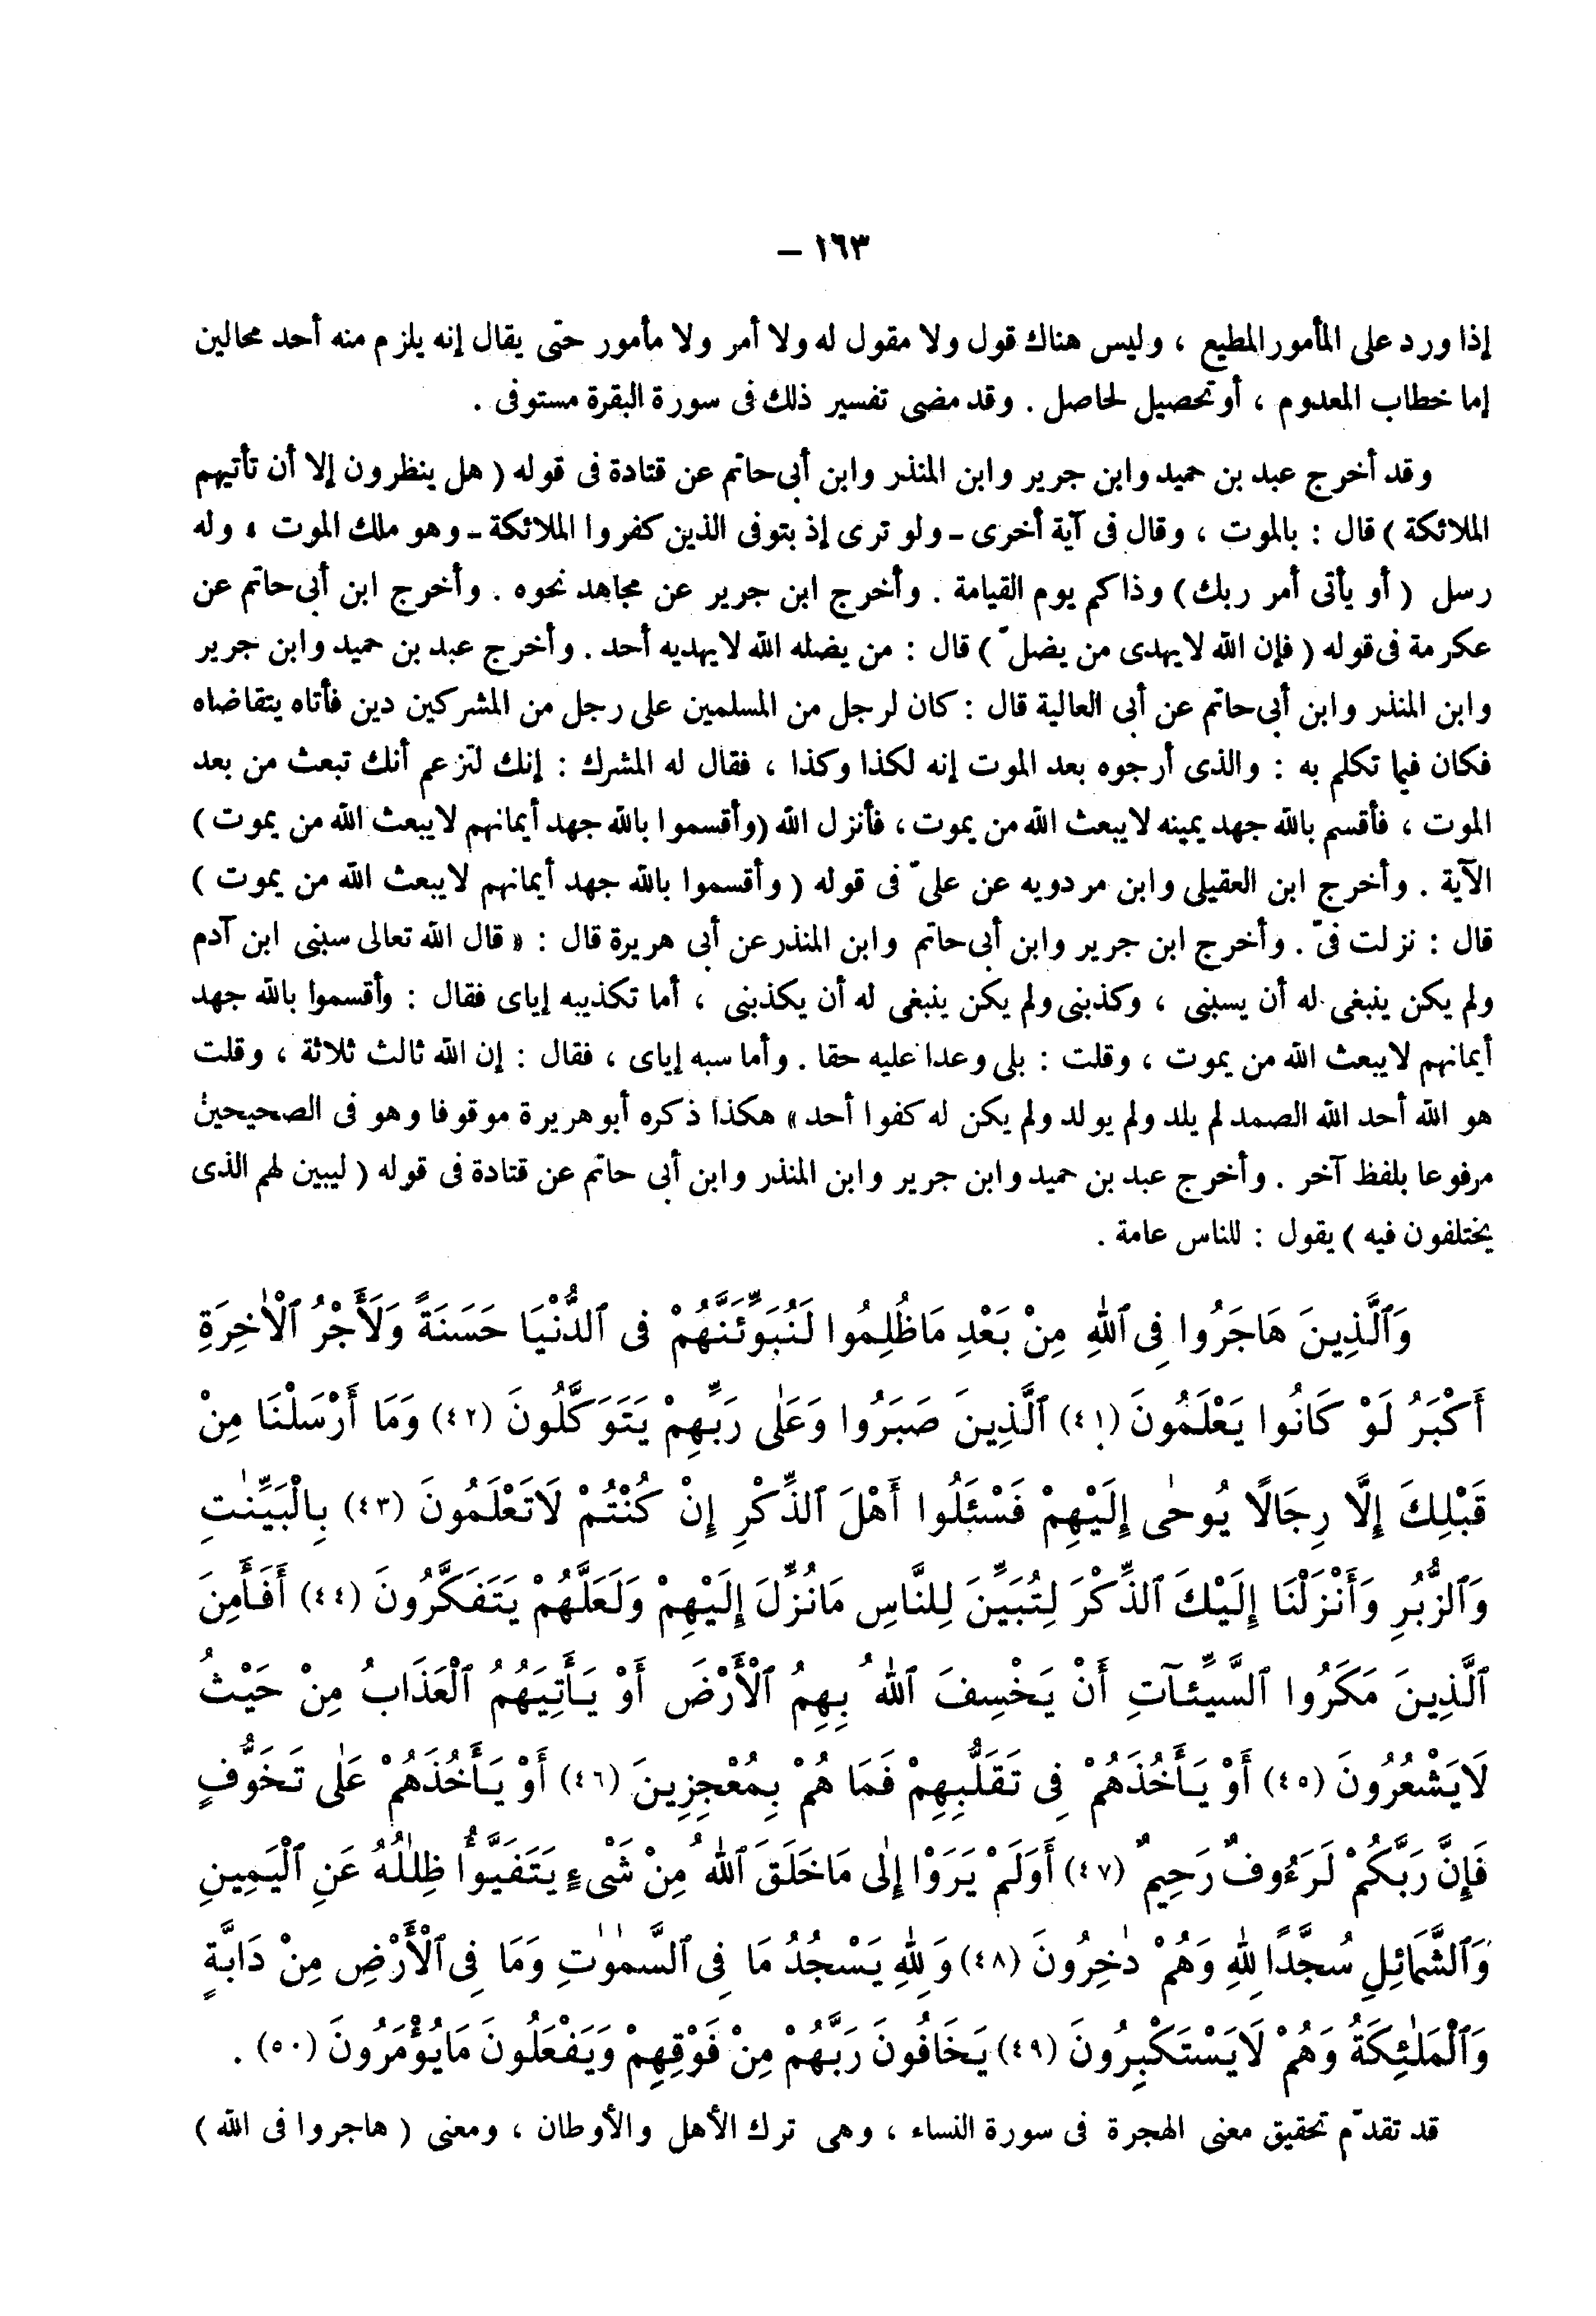 ١٦٣ –
إذا ورد على المأمور المطيع ، وليس هناك قول ولا مقول له ولا أمر ولا مأمور حتى يقال إنه يلزم منه أحد محالين
إما خطاب المعدوم ، أو تحصيل لحاصل . وقد مضى تفسير ذلك فى سورة البقرة مستوفى .
وقد أخرج عبد بن حميد وابن جرير وابن المنذر وابن أبى حاتم عن قتادة فى قوله ( هل ينظرون إلا أن تأتيهم
الملائكة ) قال : بالموت ، وقال فى آية أخرى - ولو ترى إذ بتوفى الذين كفروا الملائكة - وهو ملك الموت ، وله
رسل ( أو يأتى أمر ربك ) وذاكم يوم القيامة . وأخرج ابن جرير عن مجاهد نحوه . وأخرج ابن أبى حاتم عن
عكرمة فى قوله ( فإن الله لا يهدى من يضلّ ) قال : من يضله الله لا يهديه أحد . وأخرج عبد بن حميد وابن جرير
وابن المنذر وابن أبى حاتم عن أبى العالية قال : كان لرجل من المسلمين على رجل من المشركين دين فأتاه يتقاضاه
فكان فيما تكلم به : والذى أرجوه بعد الموت إنه لكذا وكذا ، فقال له المشرك : إنك لتزعم أنك تبعث من بعد
الموت ، فأقسم بالله جهد يمينه لا يبعث الله من يموت ، فأنزل الله ( وأقسموا بالله جهد أيمانهم لا يبعث الله من يموت )
الآية . وأخرج ابن العقيلى وابن مردويه عن علىّ فى قوله ( وأقسموا بالله جهد أيمانهم لا يبعث الله من يموت )
قال : نزلت فىّ . وأخرج ابن جرير وابن أبى حاتم وابن المنذر عن أبى هريرة قال : « قال الله تعالى سبنى ابن آدم
ولم يكن ينبغى له أن يسبنى ، وكذبنى ولم يكن ينبغى له أن يكذبنى ، أما تكذيبه إياى فقال : وأقسموا بالله جهد
أيمانهم لا يبعث الله من يموت ، وقلت : بلى وعدا عليه حقا . وأما سبه إياى ، فقال : إن الله ثالث ثلاثة ، وقلت
هو الله أحد الله الصمد لم يلد ولم يولد ولم يكن له كفوا أحد » هكذا ذكره أبو هريرة موقوفا وهو فى الصحيحين
مرفوعا بلفظ آخر . وأخرج عبد بن حميد وابن جرير وابن المنذر وابن أبى حاتم عن قتادة فى قوله ( ليبين لهم الذى
يختلفون فيه ) يقول : للناس عامة .
وَٱلَّذِينَ هَاجَرُوا فِى ٱللهِ مِنْ بَعْدِ مَاظُلِمُوا لَنُبَوِّئَنَّهُمْ فِى ٱلدُّنْيَا حَسَنَةً وَلَأَجْرُ ٱلْأٰخِرَةِ
أَكْبَرُ لَوْ كَانُوا يَعْلَمُونَ (٤١) ٱلَّذِينَ صَبَرُوا وَعَلٰى رَبِّهِمْ يَتَوَكَّلُونَ (٤٢) وَمَا أَرْسَلْنَا مِنْ
قَبْلِكَ إِلَّا رِجَالًا يُوحٰى إِلَيْهِمْ فَسْئَلُوا أَهْلَ ٱلذِّكْرِ إِنْ كُنْتُمْ لَاتَعْلَمُونَ (٤٣) بِالْبَيِّنٰتِ
وَٱلزُّبُرِ وَأَنْزَلْنَا إِلَيْكَ ٱلذِّكْرَ لِتُبَيِّنَ لِلنَّاسِ مَانُزِّلَ إِلَيْهِمْ وَلَعَلَّهُمْ يَتَفَكَّرُونَ (٤٤) أَفَأَمِنَ
ٱلَّذِينَ مَكَرُوا ٱلسَّيِّئَآتِ أَنْ يَخْسِفَ ٱللهُ بِهِمُ ٱلْأَرْضَ أَوْ يَأْتِيَهُمُ ٱلْعَذَابُ مِنْ حَيْثُ
لَايَشْعُرُونَ (٤٥) أَوْ يَأْخُذَهُمْ فِى تَقَلُّبِهِمْ فَمَا هُمْ بِمُعْجِزِينَ (٤٦) أَوْ يَأْخُذَهُمْ عَلٰى تَخَوُّفٍ
فَإِنَّ رَبَّكُمْ لَرَءُوفٌ رَحِيمٌ (٤٧) أَوَلَمْ يَرَوْا إِلٰى مَاخَلَقَ ٱللهُ مِنْ شَىْءٍ يَتَفَيَّؤُا ظِلٰلُهُ عَنِ ٱلْيَمِينِ
وَٱلشَّمَائِلِ سُجَّدًا لِلهِ وَهُمْ دٰخِرُونَ (٤٨) وَلِلهِ يَسْجُدُ مَا فِى ٱلسَّمٰوٰتِ وَمَا فِى ٱلْأَرْضِ مِنْ دَابَّةٍ
وَٱلْمَلٰئِكَةُ وَهُمْ لَايَسْتَكْبِرُونَ (٤٩) يَخَافُونَ رَبَّهُمْ مِنْ فَوْقِهِمْ وَيَفْعَلُونَ مَايُؤْمَرُونَ (٥٠) .
قد تقدّم تحقيق معنى الهجرة فى سورة النساء ، وهى ترك الأهل والأوطان ، ومعنى ( هاجروا فى الله )